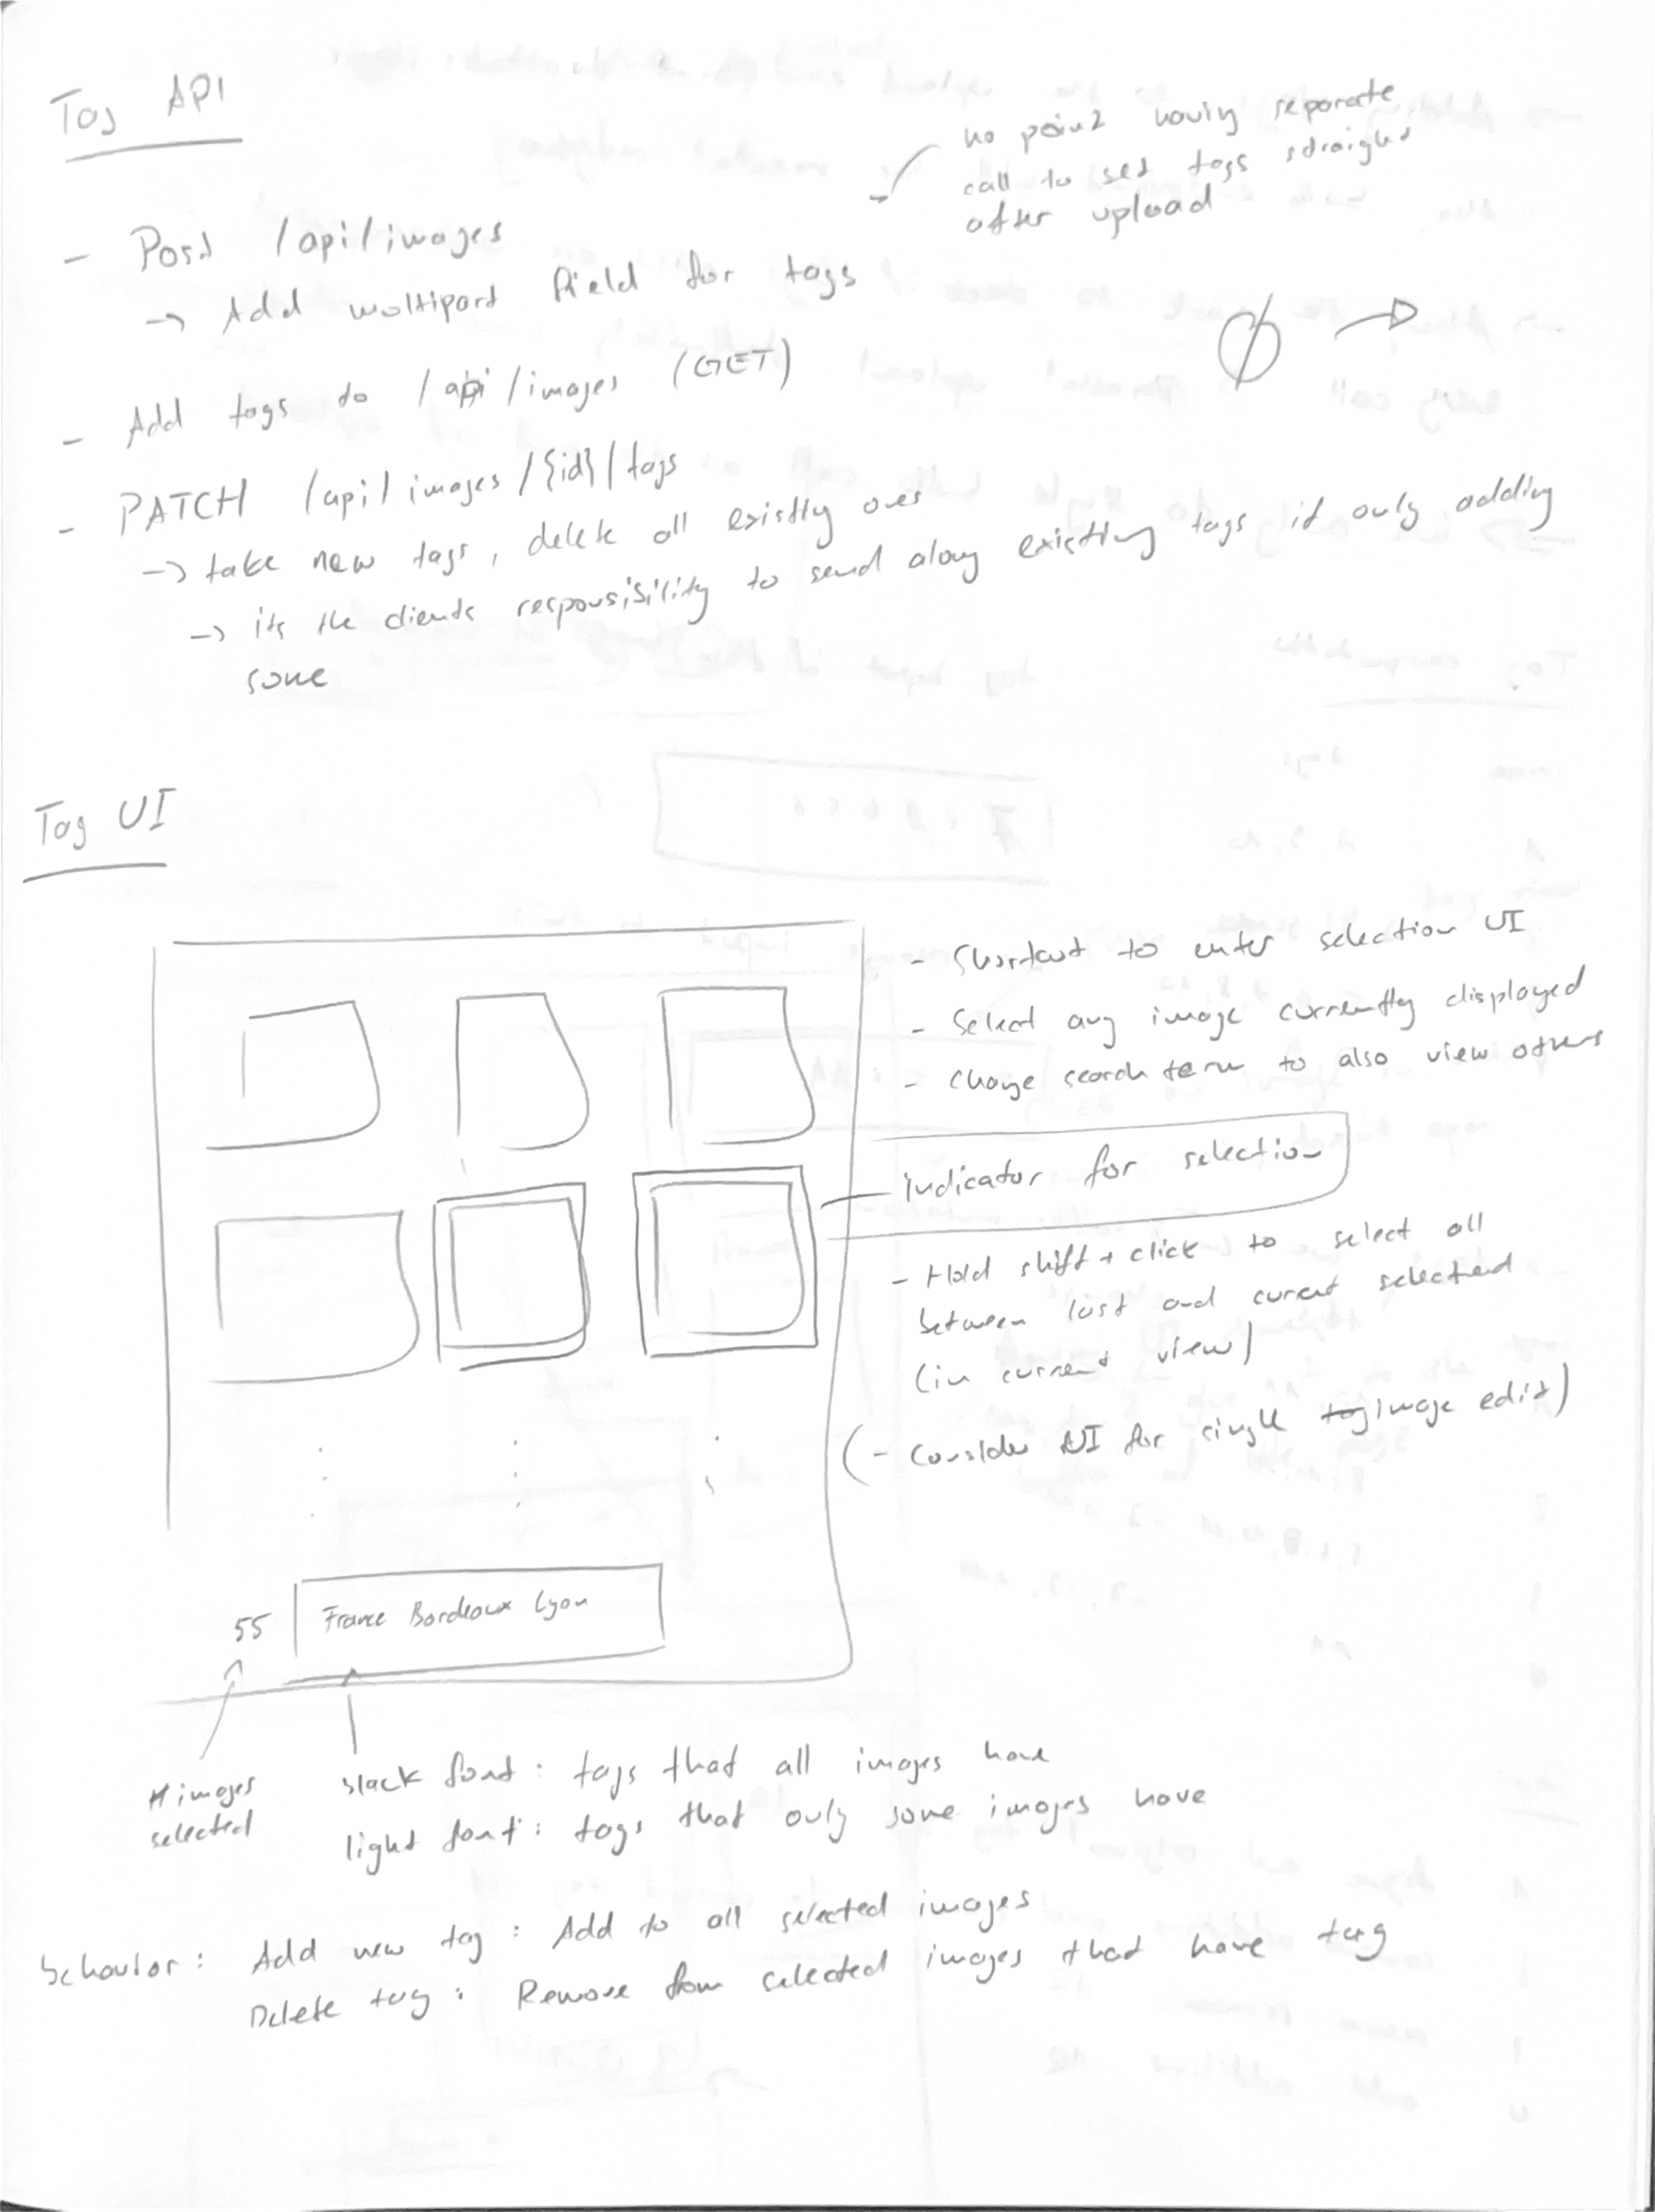 Tag API
no point having separate
call to set tags straight
after upload
- Post /api/images
→ Add multipart field for tags
- Add tags to /api/images (GET)
- PATCH /api/images/{id}/tags
→ take new tags, delete all existing ones
→ its the clients responsibility to send along existing tags if only adding
some
Tag UI
- Shortcut to enter selection UI
- Select any image currently displayed
- Change search term to also view others
indicator for selection
- Hold shift + click to select all
between last and current selected
(in current view)
(- Consider UI for single tag image edit)
55
France Bordeaux Lyon
#images
selected
black font: tags that all images have
light font: tags that only some images have
behavior: Add new tag: Add to all selected images
Delete tag: Remove from selected images that have tag